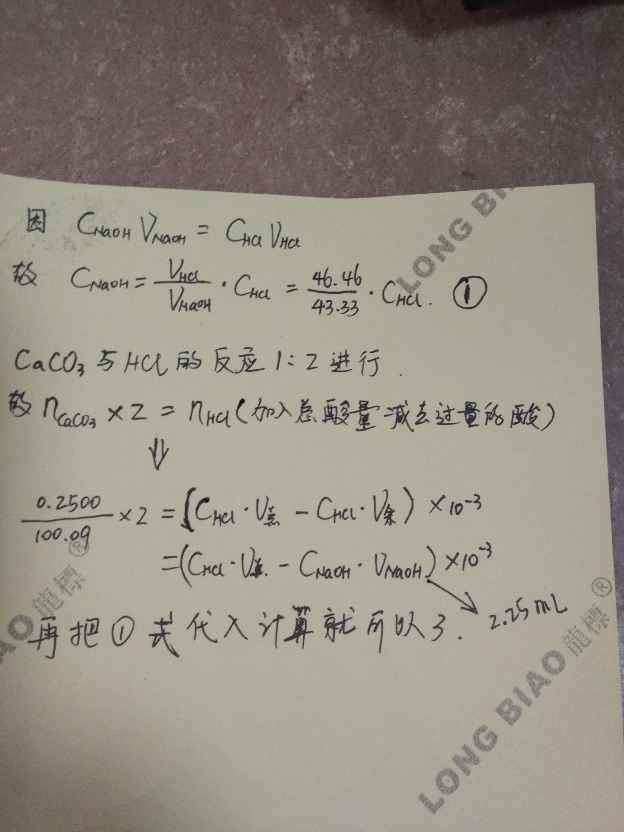 因 C_NaOH V_NaOH = C_HCl V_HCl
故 C_NaOH = V_HCl / V_NaOH · C_HCl = 46.46 / 43.33 · C_HCl. ①
CaCO₃与HCl的反应1:2进行.
故 n_CaCO₃ × 2 = n_HCl(加入总酸量减去过量的酸)
⇓
0.2500 / 100.09 × 2 = (C_HCl · V_总 - C_HCl · V_余) × 10⁻³
= (C_HCl · V_总 - C_NaOH · V_NaOH) × 10⁻³
2.25mL
再把①式代入计算就可以了.
LONG BIAO
LONG BIAO 龍標®
AO 龍標®